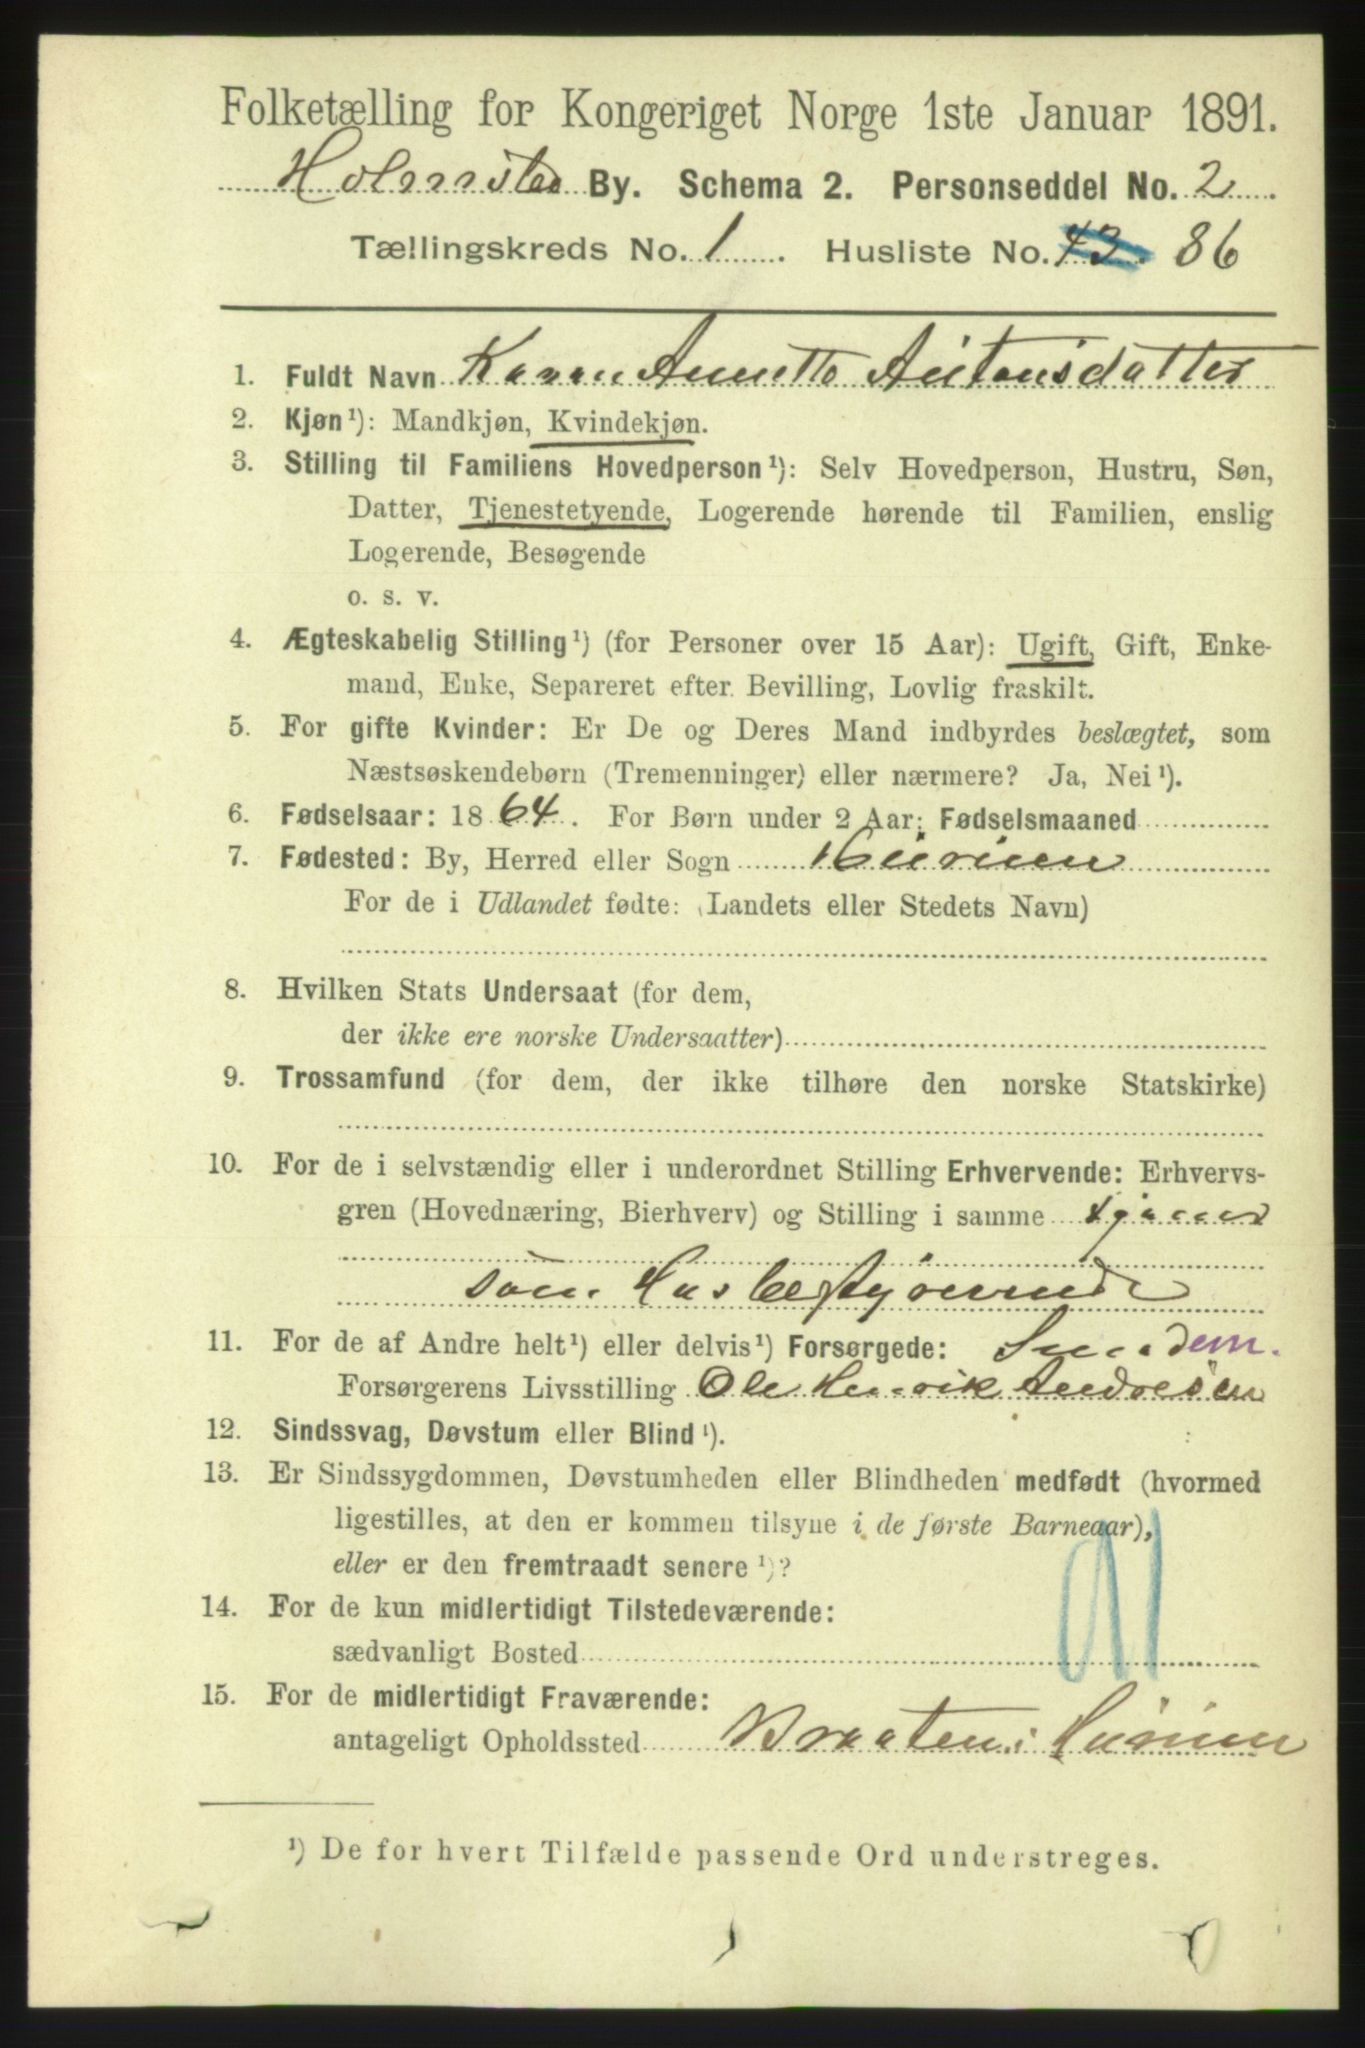 Folketælling for Kongeriget Norge 1ste Januar 1891.
Holmsbo By. Schema 2. Personseddel No. 2
Tællingskreds No. 1. Husliste No. 43. 86
1. Fuldt Navn Karen Annette Antonsdatter
2. Kjøn ¹): Mandkjøn, Kvindekjøn.
3. Stilling til Familiens Hovedperson ¹): Selv Hovedperson, Hustru, Søn,
Datter, Tjenestetyende, Logerende hørende til Familien, enslig
Logerende, Besøgende
o. s. v.
4. Ægteskabelig Stilling ¹) (for Personer over 15 Aar): Ugift, Gift, Enke-
mand, Enke, Separeret efter Bevilling, Lovlig fraskilt.
5. For gifte Kvinder: Er De og Deres Mand indbyrdes beslægtet, som
Næstsøskendebørn (Tremenninger) eller nærmere? Ja, Nei ¹).
6. Fødselsaar: 1864. For Børn under 2 Aar: Fødselsmaaned
7. Fødested: By, Herred eller Sogn Hurum
For de i Udlandet fødte: (Landets eller Stedets Navn)
8. Hvilken Stats Undersaat (for dem,
der ikke ere norske Undersaatter)
9. Trossamfund (for dem, der ikke tilhøre den norske Statskirke)
10. For de i selvstændig eller i underordnet Stilling Erhvervende: Erhvervs-
gren (Hovednæring, Bierhverv) og Stilling i samme tjener
som Husbestyrerinde
11. For de af Andre helt ¹) eller delvis ¹) Forsørgede:
Forsørgerens Livsstilling Ole Henrik Andresen
12. Sindssvag, Døvstum eller Blind ¹).
13. Er Sindssygdommen, Døvstumheden eller Blindheden medfødt (hvormed
ligestilles, at den er kommen tilsyne i de første Barneaar),
eller er den fremtraadt senere ¹)?
14. For de kun midlertidigt Tilstedeværende:
sædvanligt Bosted
91
15. For de midlertidigt Fraværende:
antageligt Opholdssted Braaten i Hurum
¹) De for hvert Tilfælde passende Ord understreges.